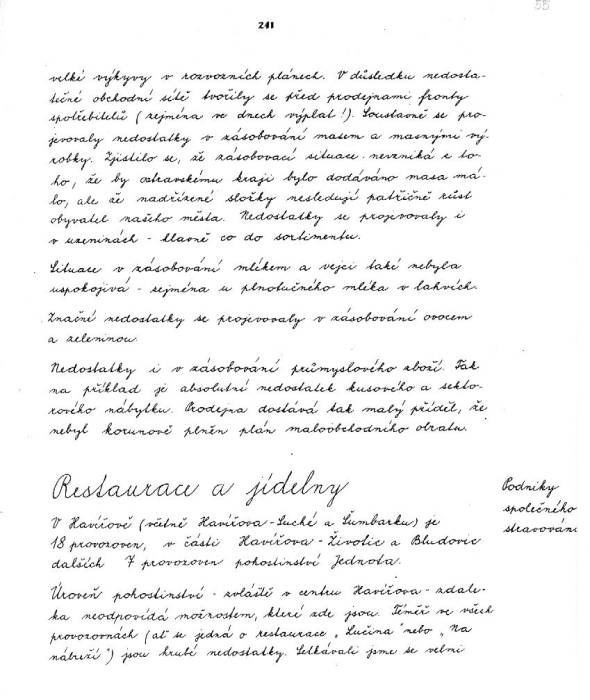 241
55
velké výkyvy v rozvozních plánech. V důsledku nedosta-
tečné obchodní sítě tvořily se před prodejnami fronty
spotřebitelů (zejména ve dnech výplat!). Soustavně se pro-
jevovaly nedostatky v zásobování masem a masnými vý-
robky. Zjistilo se, že zásobovací situace nevzniká z to-
ho, že by ostravskému kraji bylo dodáváno masa má-
lo, ale že nadřízené složky nesledují patřičně růst
obyvatel našeho města. Nedostatky se projevovaly i
v uzeninách - hlavně co do sortimentu.
Situace v zásobování mlékem a vejci také nebyla
uspokojivá - zejména u plnotučného mléka v lahvích.
Značné nedostatky se projevovaly v zásobování ovocem
a zeleninou.
Nedostatky i v zásobování průmyslového zboží. Tak
na příklad je absolutní nedostatek kusového a sekto-
rového nábytku. Prodejna dostává tak malý příděl, že
nebyl korunově plněn plán maloobchodního obratu.
Restaurace a jídelny
Podniky
společného
stravování
V Havířově (včetně Havířova-Suché a Šumbarku) je
18 provozoven, v části Havířova-Životic a Bludovic
dalších 7 provozoven pohostinství Jednota.
Úroveň pohostinství - zvláště v centru Havířova - zdale-
ka neodpovídá možnostem, které zde jsou. Téměř ve všech
provozovnách (ať se jedná o restaurace „Lučina" nebo „Na
nábřeží") jsou hrubé nedostatky. Setkávali jsme se velmi